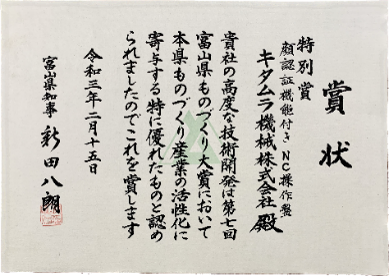 賞状
特別賞
顔認証機能付きNC操作盤
キタムラ機械株式会社 殿
貴社の高度な技術開発は第七回
富山県ものづくり大賞において
本県ものづくり産業の活性化に
寄与する特に優れたものと認め
られましたのでこれを賞します
令和三年二月十五日
富山県知事 新田八朗